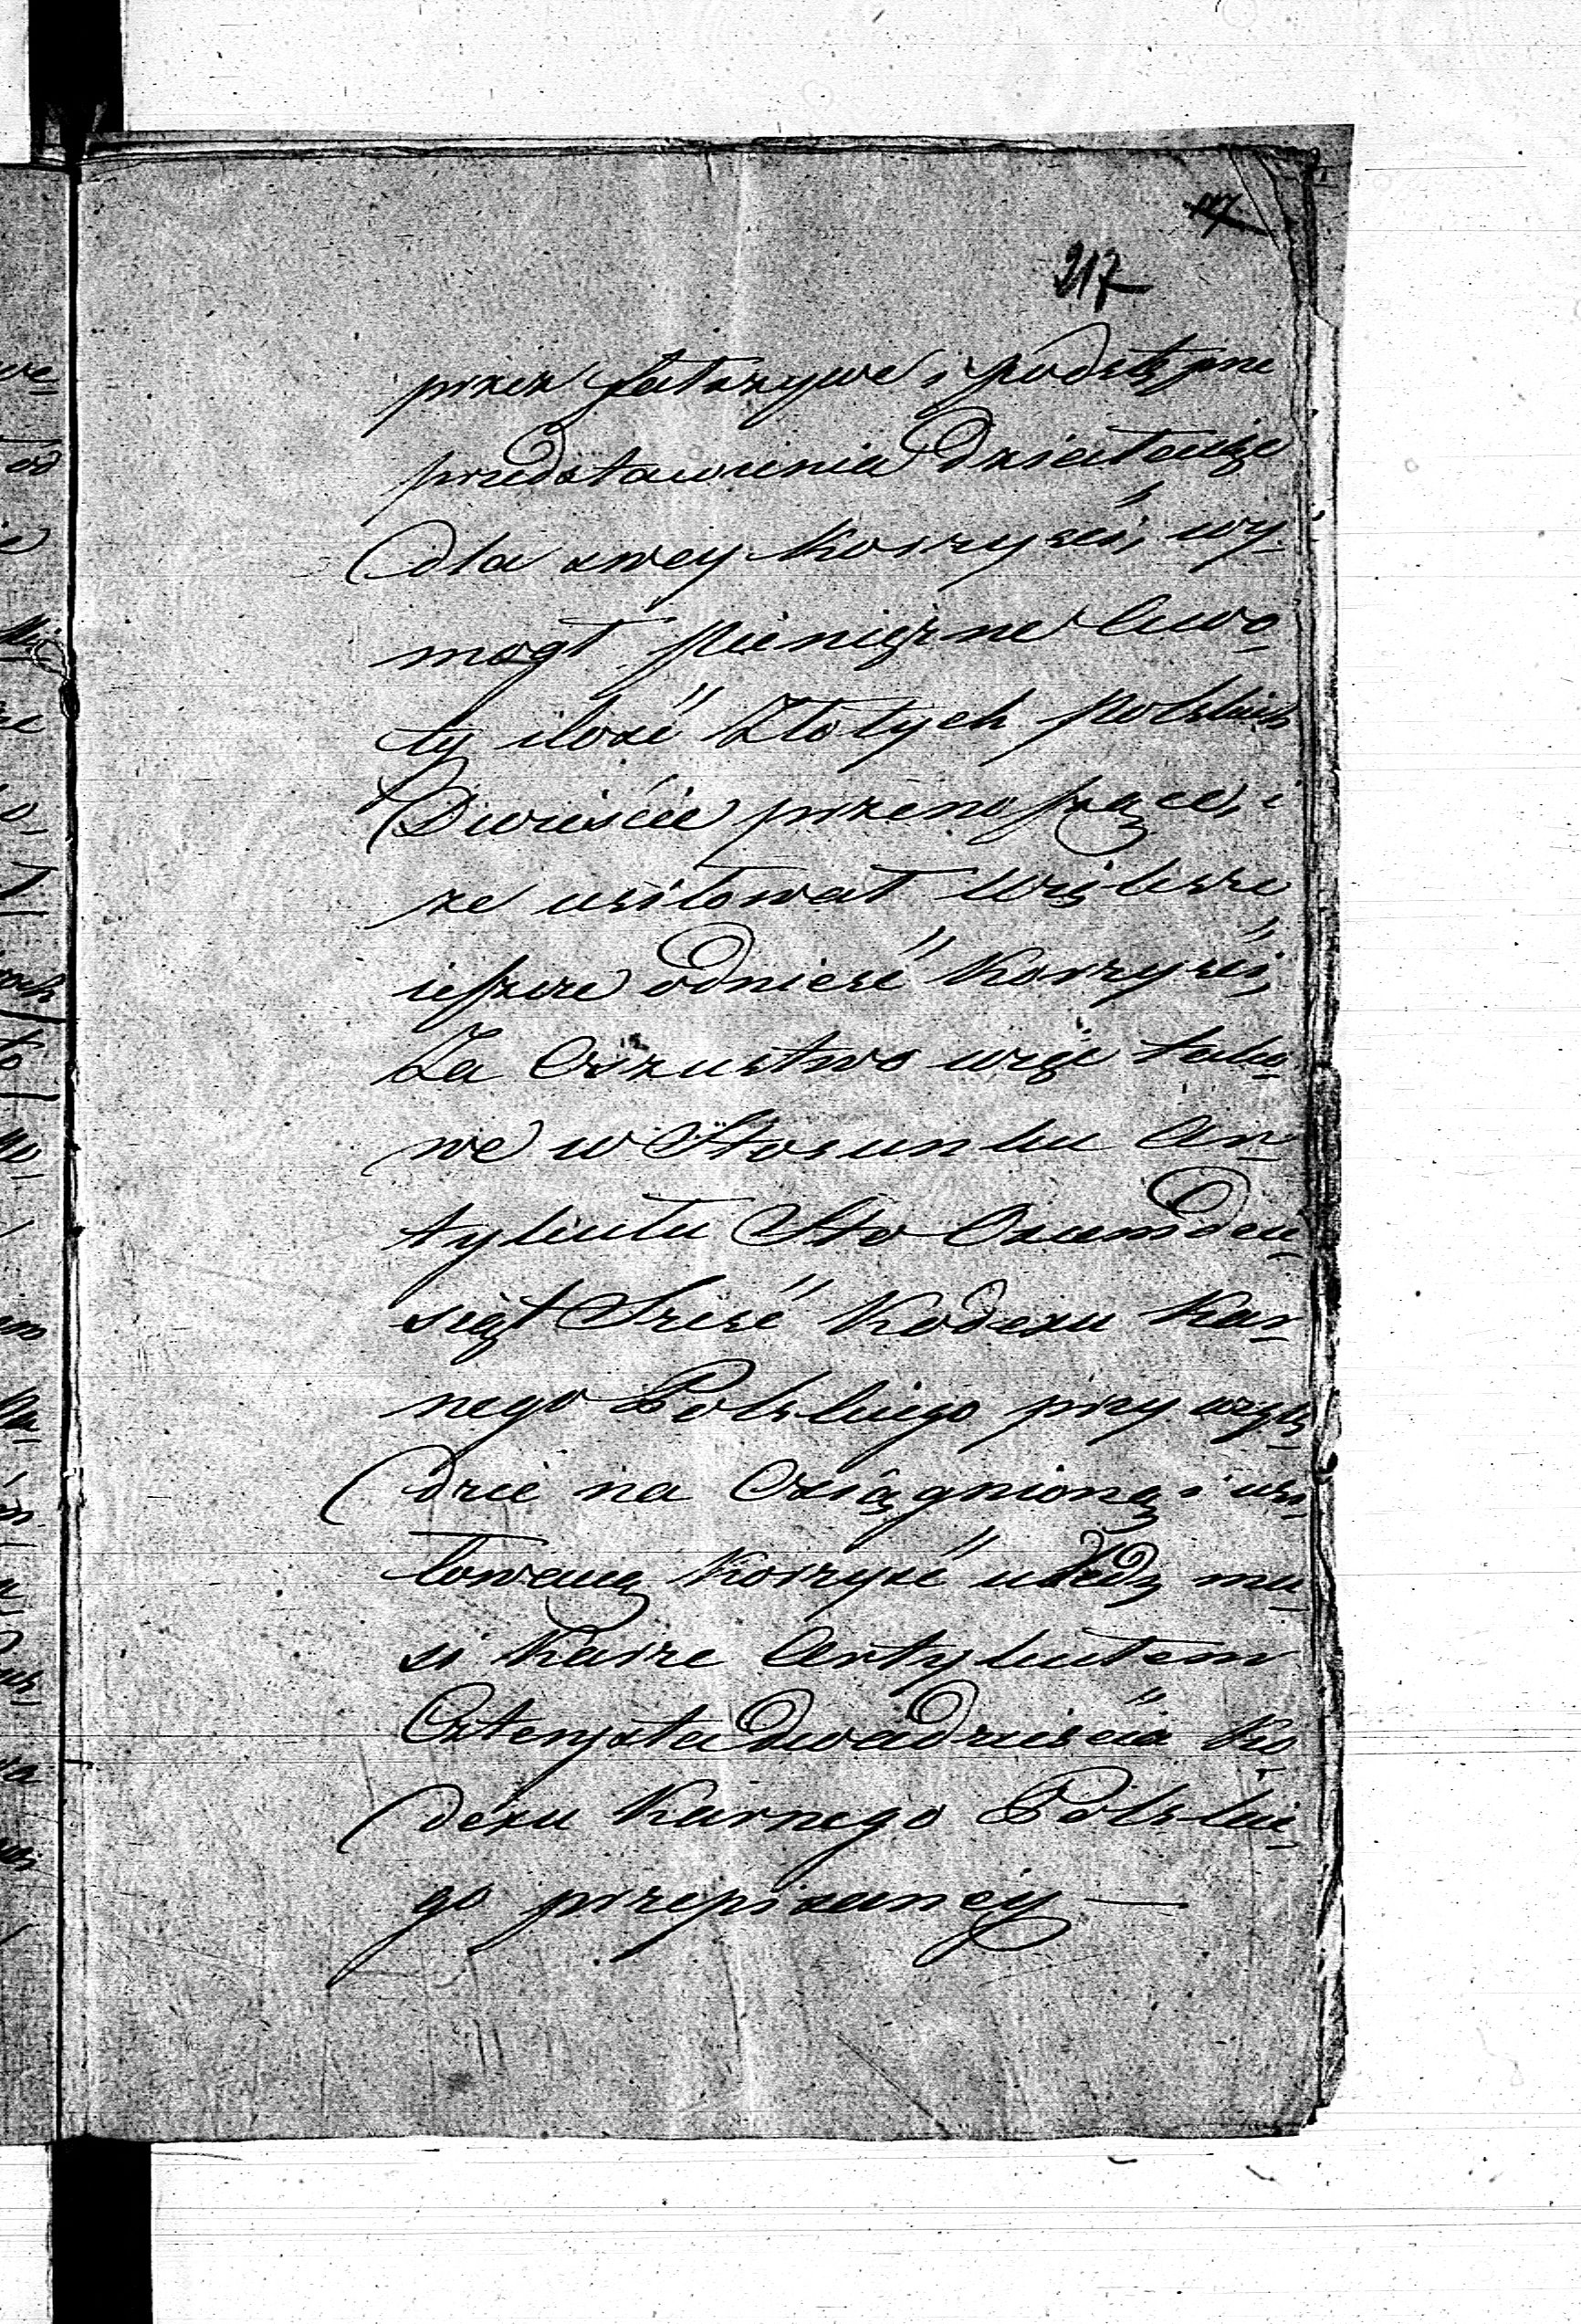 217
przez fałszywe i podstępne
przedstawienia działaiąc
dla swey korzyści, wy-
mogł pienięzne kwo-
ty ilość Złotych Polskich
Dwieście przenoszące, i
ze usiłował większe
ieszcze odnieść korzyści,
Za Oszustwo więc tako-
we w Stosunku Ar-
tykułu Sto Osiemdzie-
siąt Sześć Kodexu Kar-
nego Polskiego przy wzglę-
dzie na Osiągnioną i usi-
łowaną korzyść uledz mu-
si Karze Artykułem
Czterysta Dwadzieścia Ko-
dexu Karnego Polskie-
go przepisaney —